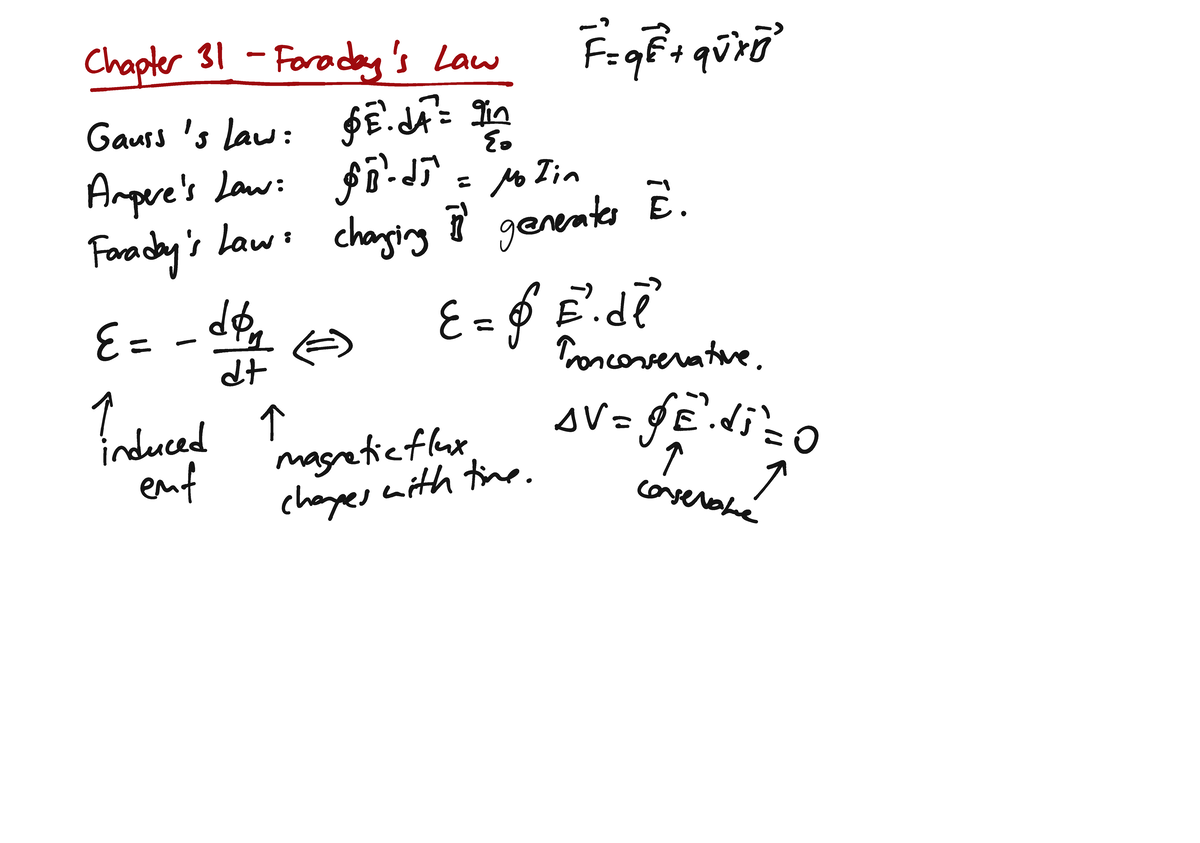 Chapter 31 - Faraday's Law
F⃗ = qE⃗ + qv⃗ × B⃗
Gauss's Law: ∮E⃗·dA⃗ = qin/ε₀
Ampere's Law: ∮B⃗·ds⃗ = μ₀ Iin
Faraday's Law: changing B⃗ generates E⃗.
ℰ = - dϕB/dt ⟺ ℰ = ∮ E⃗·dℓ⃗
↑ nonconservative.
↑ induced emf
↑ magnetic flux
changes with time.
ΔV = ∮E⃗·ds⃗ = 0
↑ conservative ↗